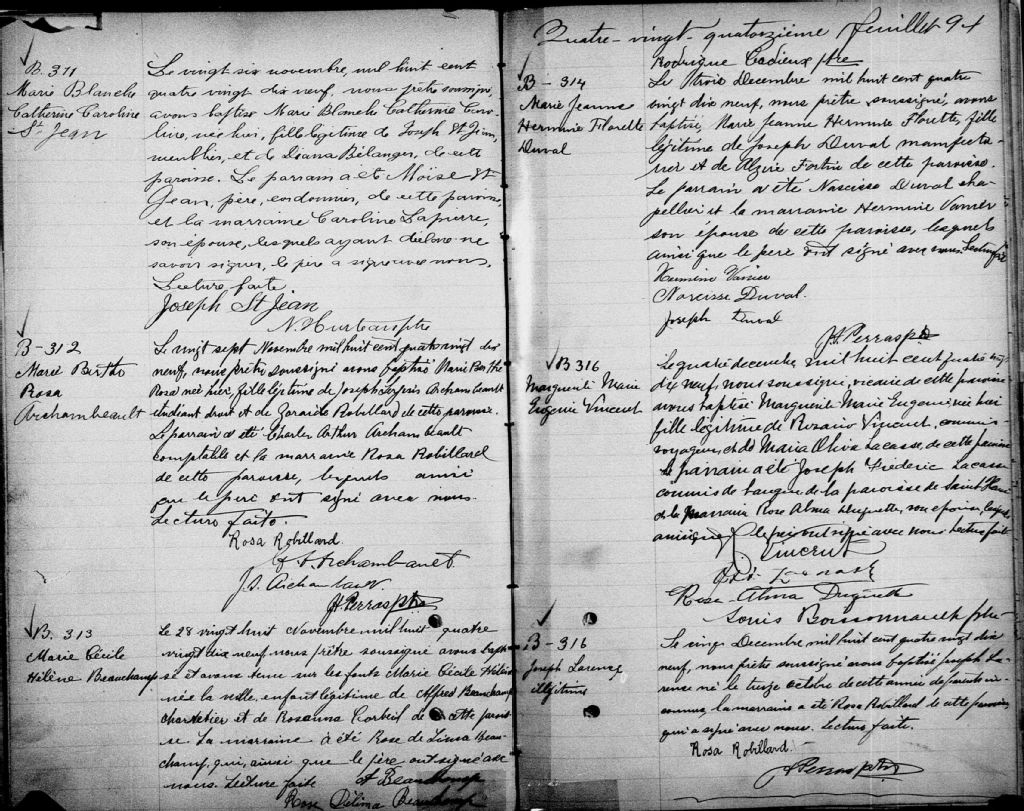 B. 311
Marie Blanche
Catherine Caroline
St Jean
Le vingt six novembre, mil huit cent
quatre vingt dix neuf, nous prêtre soussigné,
avons baptisé Marie Blanche Catherine Caro-
line, née hier, fille légitime de Joseph St Jean,
meublier, et de Diana Bélanger, de cette
paroisse. Le parrain a été Moise St
Jean, père, cordonnier, de cette paroisse,
et la marraine Caroline Lapierre,
son épouse, lesquels ayant déclaré ne
savoir signer, le père a signé avec nous.
Lecture faite
Joseph St Jean
N. Hurteau ptre
B-312
Marie Berthe
Rosa
Archambeault
Le vingt sept Novembre mil huit cent quatre vingt dix
neuf, nous prêtre soussigné avons baptisé Marie Berthe
Rosa née hier, fille légitime de Joseph Archambeault
étudiant droit et de Robillard de cette paroisse.
Le parrain a été Charles Arthur Archambeault
comptable et la marraine Rosa Robillard
de cette paroisse, lesquels ainsi
que le père ont signé avec nous.
Lecture faite.
Rosa Robillard
Archambault
J. Archambault
Perras ptre
B. 313
Marie Cécile
Hélène Beauchamp
Le 28 vingt huit Novembre mil huit quatre
vingt dix neuf nous prêtre soussigné avons bapti-
sé et avons tenu sur les fonts Marie Cécile Hélène
née la veille, enfant légitime de Alfred Beauchamp
charretier et de Rosanna Corbeil de cette parois-
se. La marraine a été Rose de Lima Beau-
champ, qui, ainsi que le père ont signé avec
nous. Lecture faite A Beauchamp
Rose Délima Beauchamp
Quatre-vingt-quatorzième feuillet 94
Rodrigue Cadieux ptre
B-314
Marie Jeanne
Herminie Florette
Duval
Le trois Decembre mil huit cent quatre
vingt dix neuf, nous prêtre soussigné, avons
baptisé, Marie Jeanne Herminie Florette, fille
légitime de Joseph Duval manufactu-
rier et de Alzire Fortin de cette paroisse.
Le parrain a été Narcisse Duval cha-
pellier et la marraine Herminie Vanier
son épouse de cette paroisse, lesquels
ainsi que le père ont signé avec nous. Lecture faite
Herminie Vanier
Narcisse Duval.
Joseph Duval
Perras ptre
B 316
Marguerite Marie
Eugénie Vincent
Le quatre décembre, mil huit cent quatre vingt
dix neuf, nous soussigné, vicaire de cette paroisse
avons baptisé Marguerite Marie Eugénie, née hier
fille légitime de Rosario Vincent, commis
voyageur, et de Maria Oliva Lacasse, de cette paroisse
le parrain a été Joseph Frédéric Lacasse
commis de banque de la paroisse de Saint Henri
et la marraine Rose Alma Duquette, son épouse, lesquels
ainsi que le père ont signé avec nous Lecture faite
Vincent
Lacasse
Rose-Alma Duquette
Louis Boissonnault ptre
B-316
Joseph Laurence
illégitime
Le cinq Decembre mil huit cent quatre vingt dix
neuf, nous prêtre soussigné avons baptisé Joseph Lau-
rence né le treize octobre de cette année de parents in-
connus, la marraine a été Rosa Robillard de cette paroisse,
qui a signé avec nous. Lecture faite.
Rosa Robillard.
Perras ptre